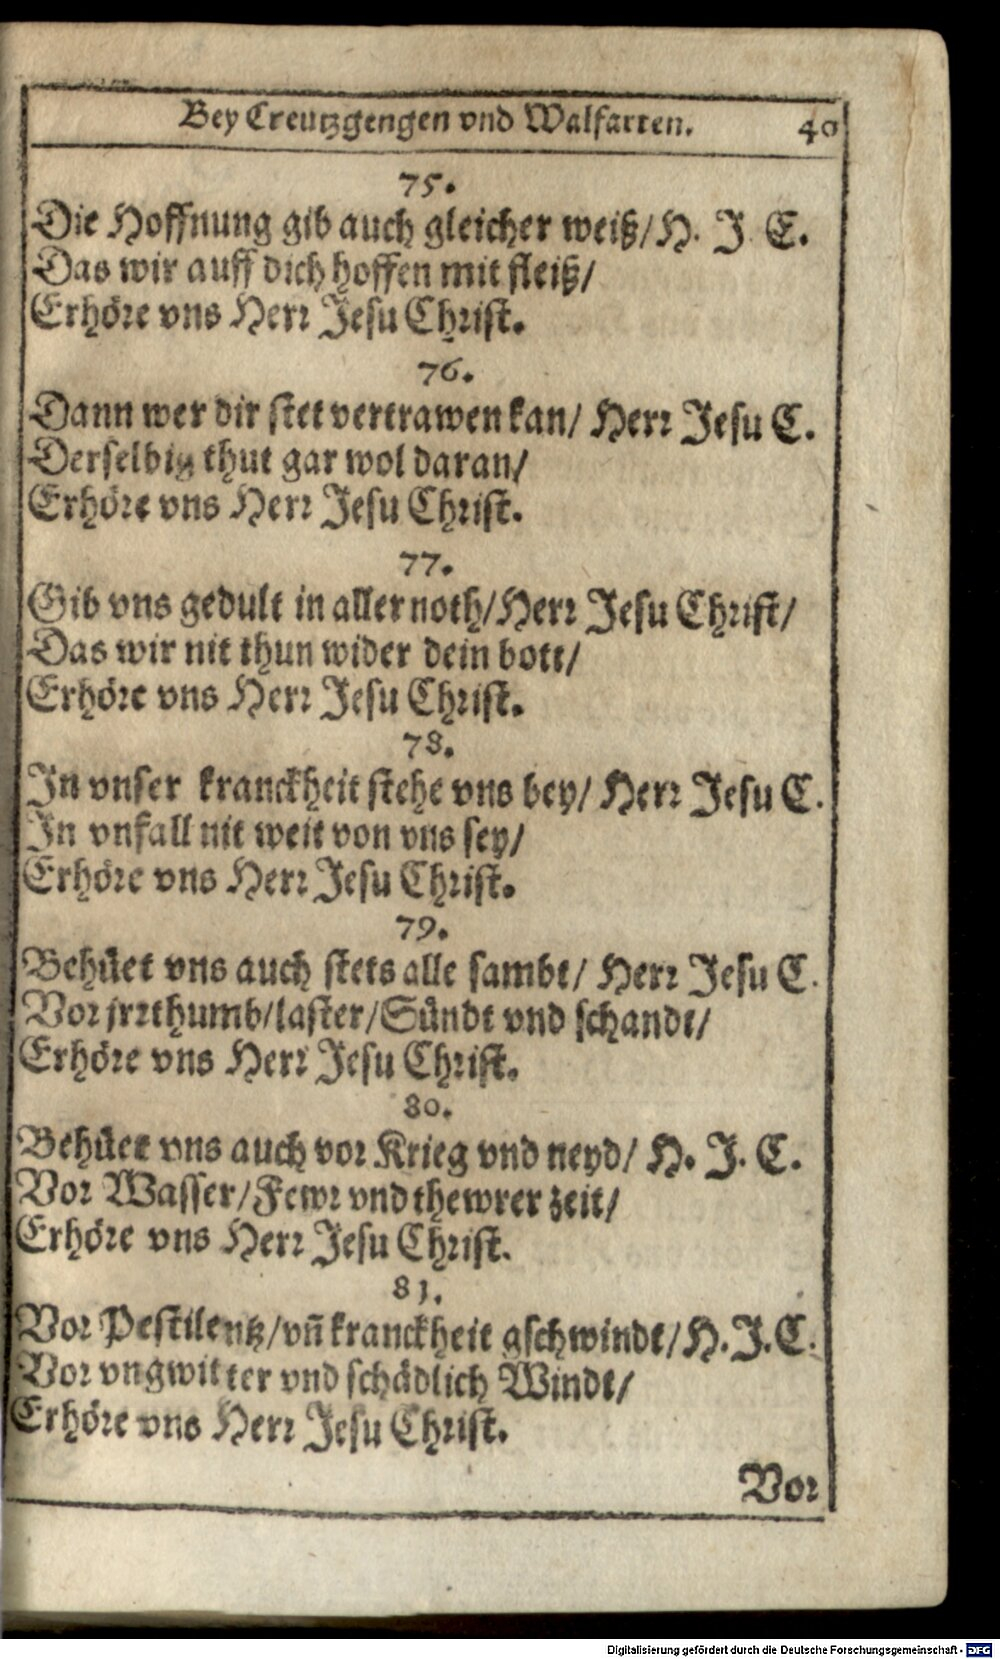 Bey Creutzgengen vnd Walfarten. 40
75.
Die Hoffnung gib auch gleicher weiß/ H. J. C.
Das wir auff dich hoffen mit fleiß/
Erhöre vns Herr Jesu Christ.
76.
Dann wer dir stet vertrawen kan/ Herr Jesu C.
Derselbig thut gar wol daran/
Erhöre vns Herr Jesu Christ.
77.
Gib vns gedult in aller noth/ Herr Jesu Christ/
Das wir nit thun wider dein bott/
Erhöre vns Herr Jesu Christ.
78.
In vnser kranckheit stehe vns bey/ Herr Jesu C.
In vnfall nit weit von vns sey/
Erhöre vns Herr Jesu Christ.
79.
Behüet vns auch stets alle sambt/ Herr Jesu C.
Vor jrrthumb/ laster/ Sündt vnd schandt/
Erhöre vns Herr Jesu Christ.
80.
Behüet vns auch vor Krieg vnd neyd/ H. J. C.
Vor Wasser/ Fewr vnd thewrer zeit/
Erhöre vns Herr Jesu Christ.
81.
Vor Pestilentz/ vñ kranckheit gschwindt/ H. J. C.
Vor vngwitter vnd schädlich Windt/
Erhöre vns Herr Jesu Christ.
Vor
Digitalisierung gefördert durch die Deutsche Forschungsgemeinschaft - DFG